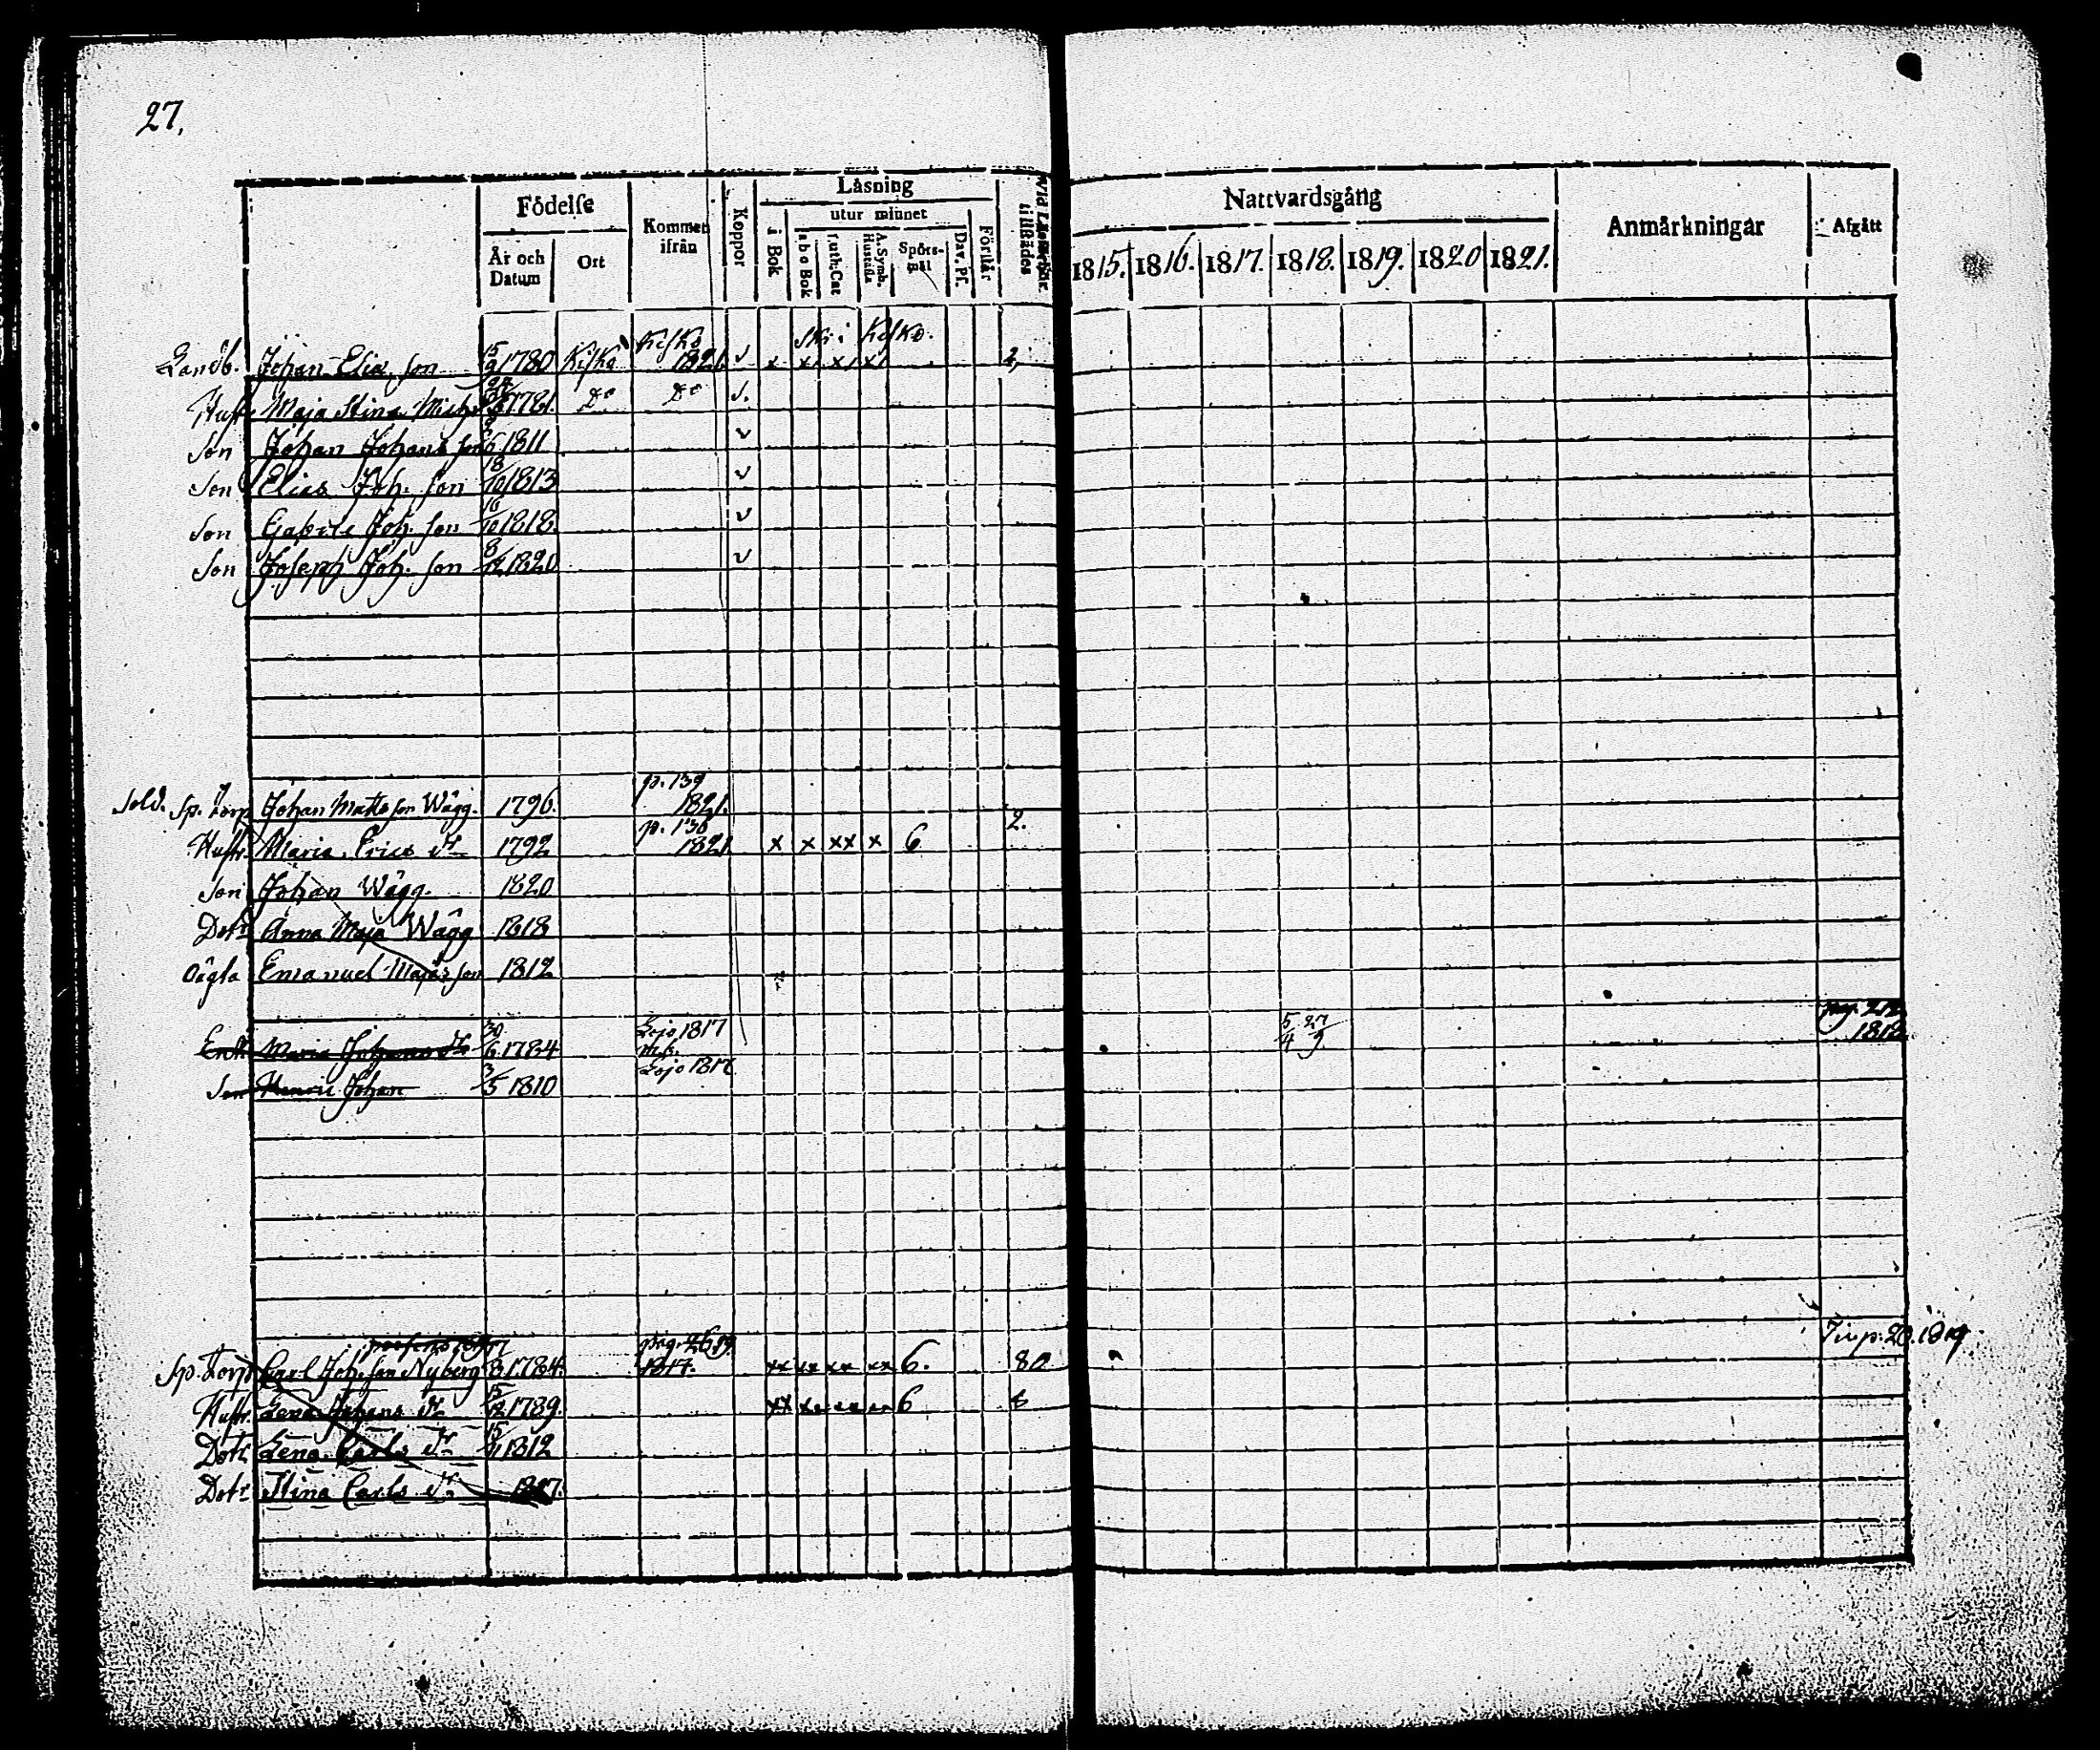 27.
Födelse Kommen ifrån Koppor Läsning Vid Läseförhör tillstädes Nattvardsgång Anmärkningar Afgått
År och Datum Ort i Bok utur minnet Förstår
a b c Bok Luth. Cat A. Symb. Hustafla Spörsmål Dav. Ps.
1815. 1816. 1817. 1818. 1819. 1820 1821.
Kisko i Kisko.
Landb. Johan Elias son 15/9 1780 Kisko 1821. v x 2,
Hustr Maja Stina Mich 1781. Do Do v.
Son Johan Johans son 1811 v
Son Elias Joh. son 18/10 1813 v
Son Gabriel Joh. son 16/10 1818. v
Son Joseph Joh. son 8/12 1820 v
p. 139
Sold. Sp. Torp Johan Matts son Wägg. 1796. 1821. 2.
p. 138
Hustr. Maria Erics dr 1792 1821 x x xx x 6
Son Johan Wägg. 1820
Dotr Anna Maja Wägg 1818
Emanuel son 1812
Enk. Maria Johans dr 30/6 1784 Lojo 1817 5/4 27/9 pag. 1818.
Son Henric Johan 3/5 1810 Lojo 1817
pag. 26
Sp. Torp Carl Joh. son Nyberg 1784. 1817. xx xx xx xx 6. 8
Hustr. Lena Johans dr 15/12 1789. xx 6 8
Dotr Lena Carls dr 15/11 1812
Dotr Stina Carls dr 1817.